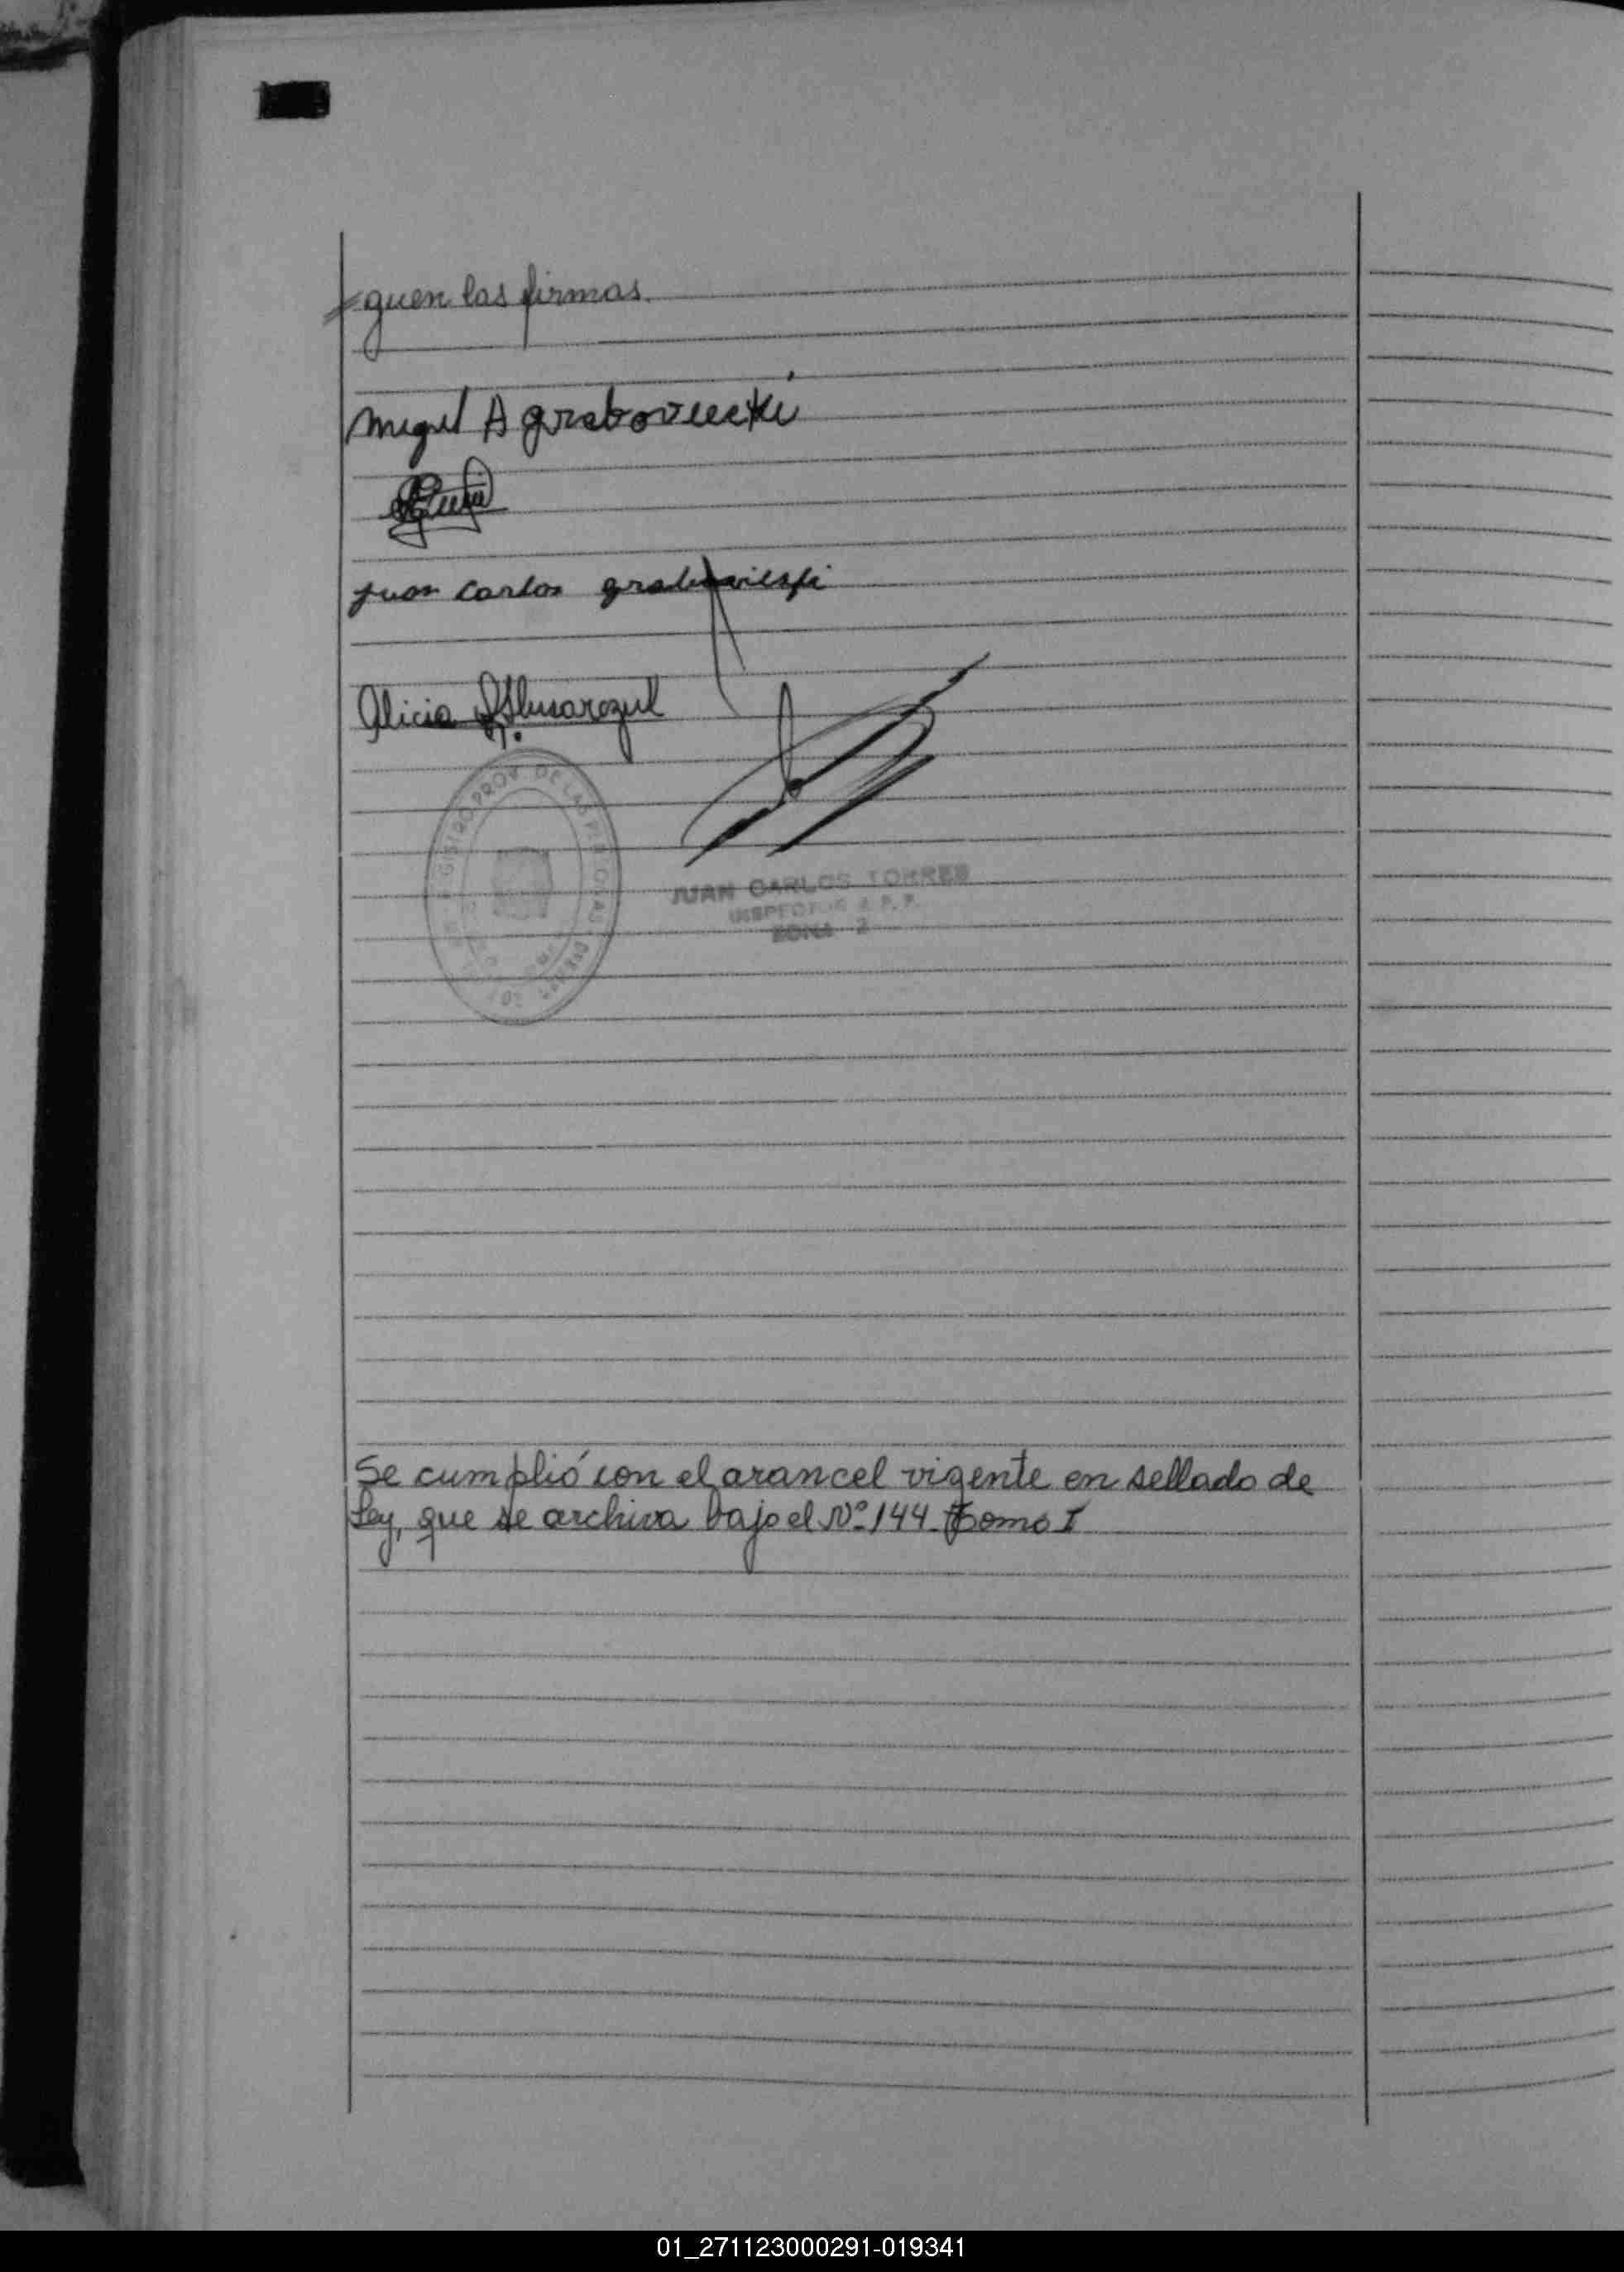 guen las firmas.
Miguel A grabovieski
Juan Carlos grabovieski
Alicia
REGISTRO PROV. DE LAS PERSONAS
JUAN CARLOS TORRES
INSPECTOR R. P. P.
ZONA 2
Se cumplió con el arancel vigente en sellado de
Ley, que se archiva bajo el Nº 144 Tomo I
01_271123000291-019341